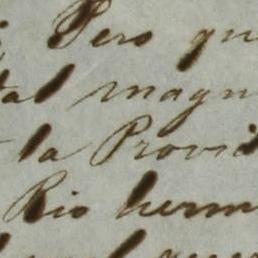 Pero qu
tal magn
la Provid
Rio herm